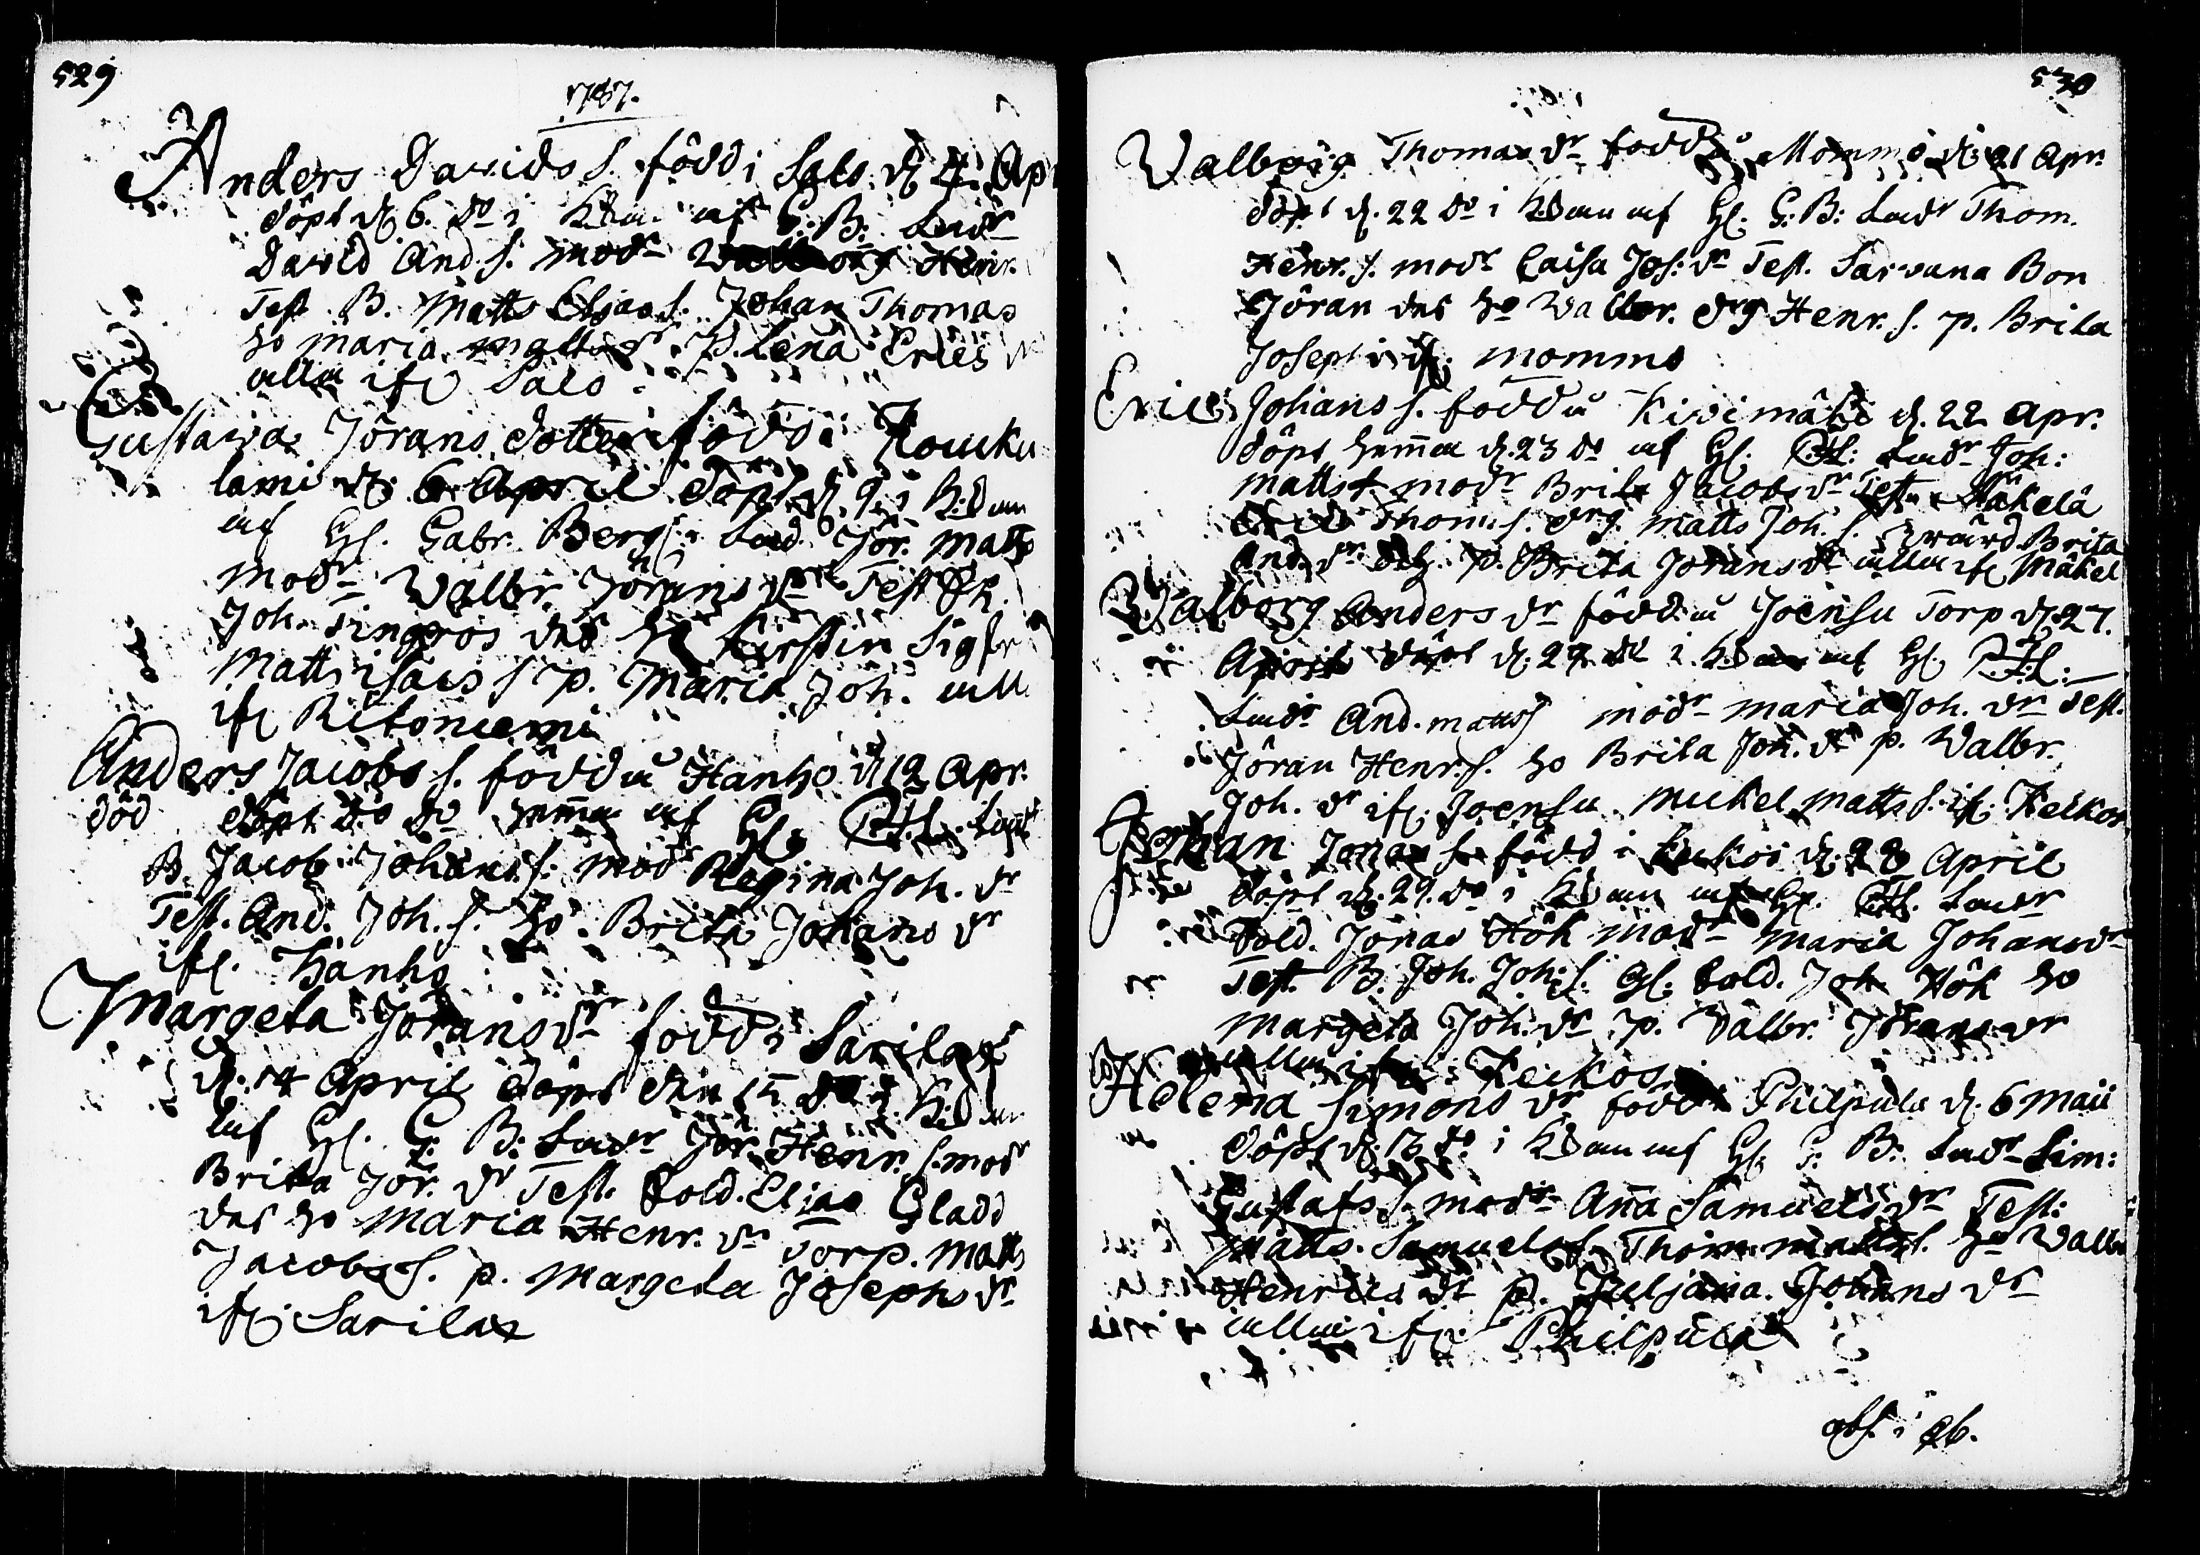 529
1787.
Anders Davids s. född i Salo d. 4. Apr
döpt d. 6. do i Kban af G: B: Fadr
David And. s. modr Walborg Henr.
Test. B. Matts Elias s. Johan Thomas
ho Maria Matts dr p. Lena Erics
alla ifr Salo
Gustava Jörans dotter född i Kouku
lami d. 6 April döpt d. 9. i K:ban
af Hl. Gabr. Berg Fad. Jör. Matts
modr Walbr. Jörans dr Test
Joh. Tingros des ho Kirstin Sigfr
Matts Isacs s p. Maria Joh. all
ifr Ritoniemi
Anders Jacobs s. född i Hanho d. 12 Apr.
död döpt do hemma af Hl.
B. Jacob Johans s: modr Regina Joh. dr
Test. And. Joh. s. ho Brita Johans dr
ifr. Hanho
Margeta Jörans dr född i Sarilax
d. 14 April döpt den 15 do i K:ban
af Hl. G: B: Fadr Jör. Henr. s. modr
Brita Jör. dr Test. Sold. Elias Gladd
des ho Maria Henr. dr Torp. Matts
Jacobs s. p. Margeta Josephs dr
ifr Sarilax
530
Walborg Thomas dr född i Mommo d. 21 Apr.
döpt d. 22 do i Kban af Hl. G: B: Fadr Thom.
Henr. s. modr Caisa Jos: dr Test. Sarvana Bon
Jöran des ho Walbr. drg Henr. s. p. Brita
Joseph ifr. Mommo
Eric Johans s. född i Kivimäki d. 22 Apr.
döpt hemma d. 23 do af Hl. Fadr Joh:
Matts s modr Brita Jacobs dr Test. Mäkelä
Thom. s. drg Matts Joh. s. värd. Brita
And. dr p. Brita Jorans dr alla ifr Mäkel
Walborg Anders dr född i Joensu Torp d. 27.
April döpt d. 29 do i Kban af Hl.
Fadr And. Matts s modr Maria Joh. dr Test.
Jöran Henr. s. ho Brita Joh. dr p. Walbr.
Joh. dr ifr. Joensu. Mickel Matts s. ifr. Keikos
Johan Jonas s. född i Keikos d. 28 April
döpt d. 29. do i Kban af Hl. Fadr
Sold. Jonas Hök modr Maria Johans dr
Test. B. Joh. Joh: s. Hl. Sold. Joh Hök ho
Margeta Joh. dr p. Walbr. Johans dr
alla i Keikos
Helena Simons dr född i Philpula d. 6 Maii
döpt d. 13 do i Kban af Hl G: B: Fadr Sim:
Gustafs s. modr Anna Samuels dr Test:
Matts. Samuels s. Thom. Matts s. ho Walbr
Henrics dr p. Juljana. Johans dr
alla ifr. Philpula